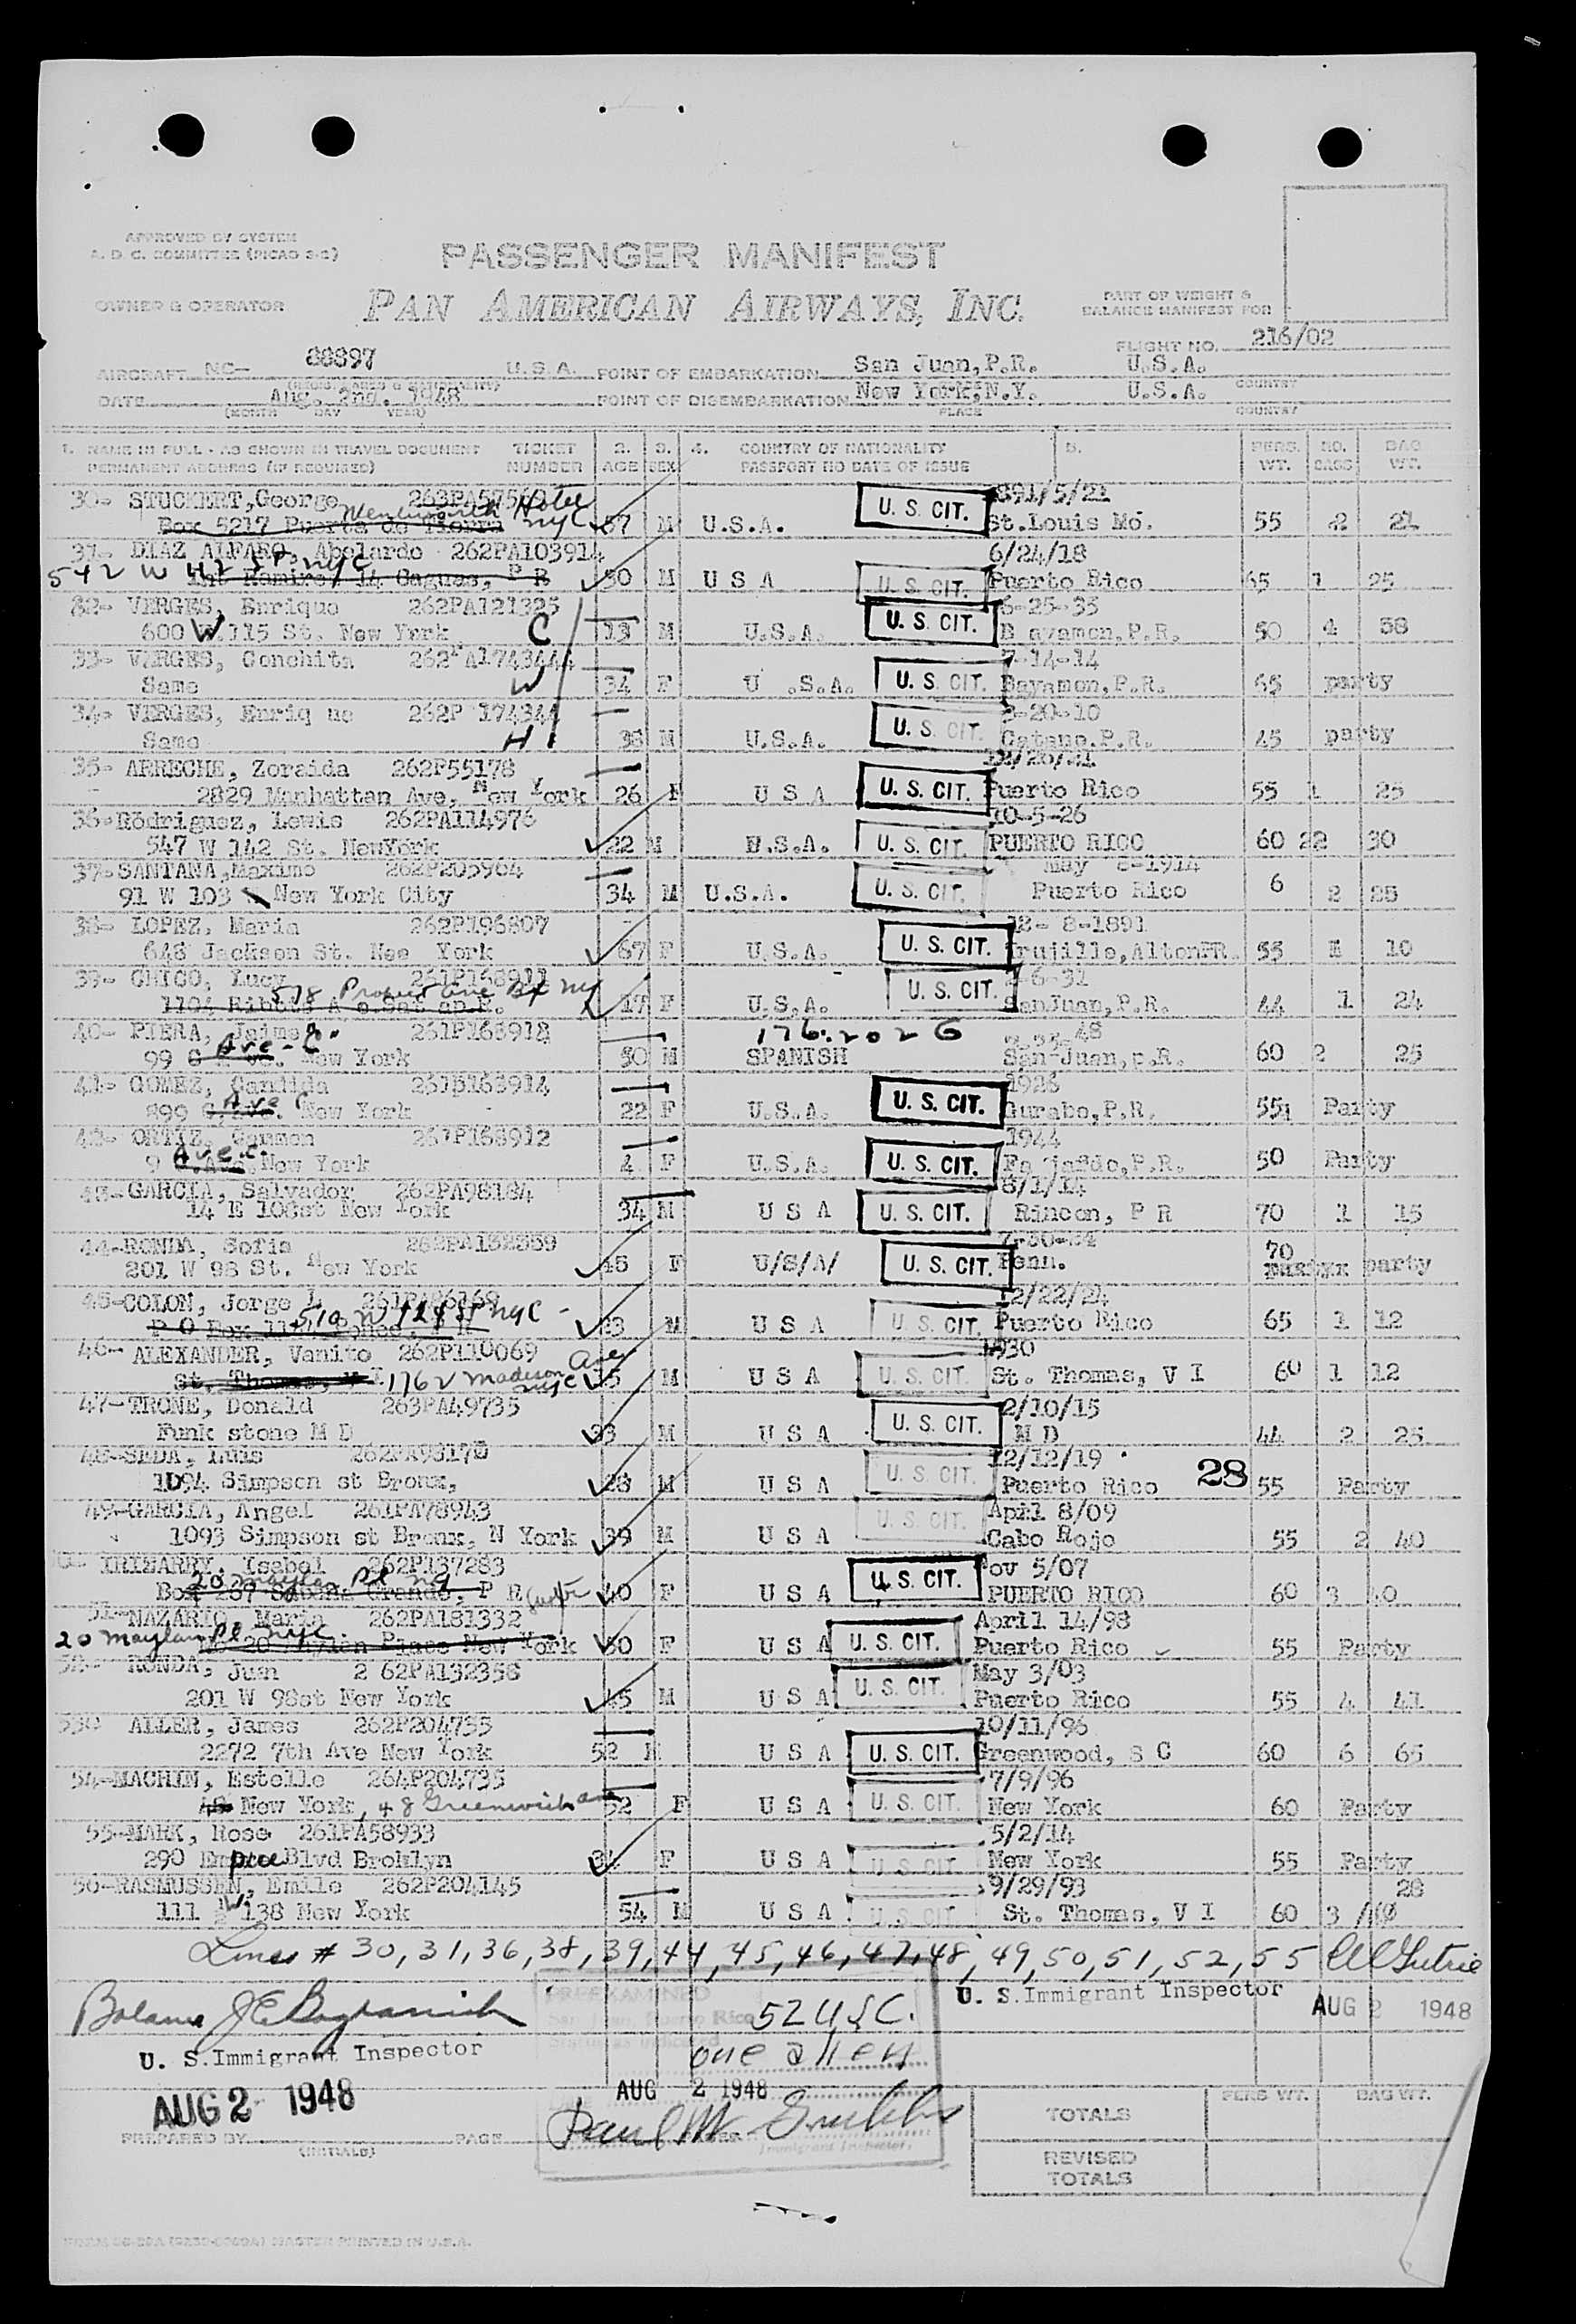 APPROVED BY SYSTEM
A. D. C. COMMITTEE (PICAO 2-2)
PASSENGER MANIFEST
OWNER & OPERATOR
PAN AMERICAN AIRWAYS, INC.
PART OF WEIGHT &
BALANCE MANIFEST FOR
FLIGHT NO. 216/02
AIRCRAFT NC- 88897 U.S.A. POINT OF EMBARKATION San Juan, P.R. U.S.A.
DATE Aug. 2nd. 1948 POINT OF DISEMBARKATION New York, N.Y. U.S.A.
(MONTH DAY YEAR) PLACE COUNTRY
1. NAME IN FULL - AS SHOWN IN TRAVEL DOCUMENT TICKET 2. 3. 4. COUNTRY OF NATIONALITY 5. PERS. NO. BAG
PERMANENT ADDRESS (IF REQUIRED) NUMBER AGE SEX PASSPORT NO DATE OF ISSUE WT. BAGS WT.
30- STUCKERT, George 263PA57569 1891/5/21
Box 5217 Puerta de Tierra Wentworth Hotel NYC 57 M U.S.A. U. S. CIT. St.Louis Mo. 55 2 21
31- DIAZ ALFARO, Abelardo 262PA103914 6/24/18
542 W 42 St. NYC Ramirez 14 Caguas, P R 30 M U S A U. S. CIT. Puerto Rico 65 1 25
32- VERGES, Enrique 262PA121325 6-25-35
600 W 115 St. New York C 13 M U.S.A. U. S. CIT. B ayamon, P.R. 50 4 58
33- VERGES, Conchita 262PA1743444 7-14-14
Same W 34 F U .S.A. U. S. CIT. Bayamon, P.R. 65 party
34- VERGES, Enriq ue 262P 174344 -20-10
Same H 38 M U.S.A. U. S. CIT. Catano, P.R. 45 party
35- ARRECHE, Zoraida 262P55178 12/20/21
2829 Manhattan Ave, New York 26 F U S A U. S. CIT. Puerto Rico 55 1 25
36- Rodriguez, Lewis 262PA114976 10-5-26
547 W 142 St. NewYork 22 M U.S.A. U. S. CIT. PUERTO RICO 60 22 30
37- SANTANA, Maximo 262P205964 May 8-1914
91 W 103 New York City 34 M U.S.A. U. S. CIT. Puerto Rico 6 2 25
38- LOPEZ, Maria 262P196807 12- 8-1891
648 Jackson St. Nee York 67 F U.S.A. U. S. CIT. Trujillo, AltonPR. 55 1 10
39- CHICO, Lucy 261P168911 -6-31
578 Prospect Ave Bx NY 17 F U.S.A. U. S. CIT. SanJuan, P.R. 44 1 24
40- PIERA, Jaime 261P168918 176.202 G
99 Ave - C New York 50 M SPANISH San-Juan, p.R. 60 2 25
41- GOMEZ, Candida 261P168914 1926
899 Ave C New York 22 F U.S.A. U. S. CIT. Gurabo, P.R. 55 Party
42- ORTIZ, Carmen 261P168912 1944
9 Ave. C. New York 4 F U.S.A. U. S. CIT. Fa jardo, P.R. 50 Party
43- GARCIA, Salvador 262PA98184 8/1/14
14 E 108st New York 34 M U S A U. S. CIT. Rincon, P R 70 1 15
44- RONDA, Sofia 262PA132359 7-30-
201 W 98 St. New York 45 F U/S/A/ U. S. CIT. Penn. 70 party
45- COLON, Jorge L 261PA96169 12/22/24
510 W 124 St NYC 23 M U S A U. S. CIT. Puerto Rico 65 1 12
46- ALEXANDER, Vanito 262P110069 1930
St. Thomas, V I. 1762 Madison Ave NYC M U S A U. S. CIT. St. Thomas, V I 60 1 12
47- TRONE, Donald 263PA49735 2/10/15
Funk stone M D 33 M U S A U. S. CIT. M D 44 2 25
48- SEDA, Luis 262PA9317 12/12/19
1094 Simpson st Bronx, 28 M U S A U. S. CIT. Puerto Rico 28 55 Party
49- GARCIA, Angel 261PA78943 April 8/09
1093 Simpson st Bronx, N York 39 M U S A U. S. CIT. Cabo Rojo 55 2 40
IRIZARRY, Isabel 262P137283 Nov 5/07
20 Maylan Pl NY Box 237 Sabana Grande, P R 40 F U S A U. S. CIT. PUERTO RICO 60 3 40
51- NAZARIO, Maria 262PA181332 April 14/98
20 Maylan Pl NYC Place New York 50 F U S A U. S. CIT. Puerto Rico 55 Party
RONDA, Juan 2 62PA132358 May 3/03
201 W 98st New York 45 M U S A U. S. CIT. Puerto Rico 55 4 41
53- ALLER, James 262P204735 10/11/96
2272 7th Ave New York 52 M U S A U. S. CIT. Greenwood, S C 60 6 65
54- MACHIN, Estelle 264P204735 7/9/96
New York, 48 Greenwich ave 52 F U S A U. S. CIT. New York 60 Party
55- MARK, Rose 261PA58933 5/2/14
290 Empire Blvd Broklyn F U S A U. S. CIT. New York 55 Party
56- RASMUSSEN, Emile 262P204145 9/29/93 28
111 W 138 New York 54 M U S A U. S. CIT. St. Thomas, V I 60 3
Lines # 30, 31, 36, 38, 39, 44, 45, 46, 47, 48, 49, 50, 51, 52, 55
U. S.Immigrant Inspector AUG 2 1948
PREEXAMINED
San Juan, Puerto Rico
52 USC.
one alien
U. S.Immigrant Inspector
AUG 2 1948
AUG 2 1948
Paul M Grubbs
Immigrant Inspector
PREPARED BY (INITIALS) PAGE
PERS WT. BAG WT.
TOTALS
REVISED
TOTALS